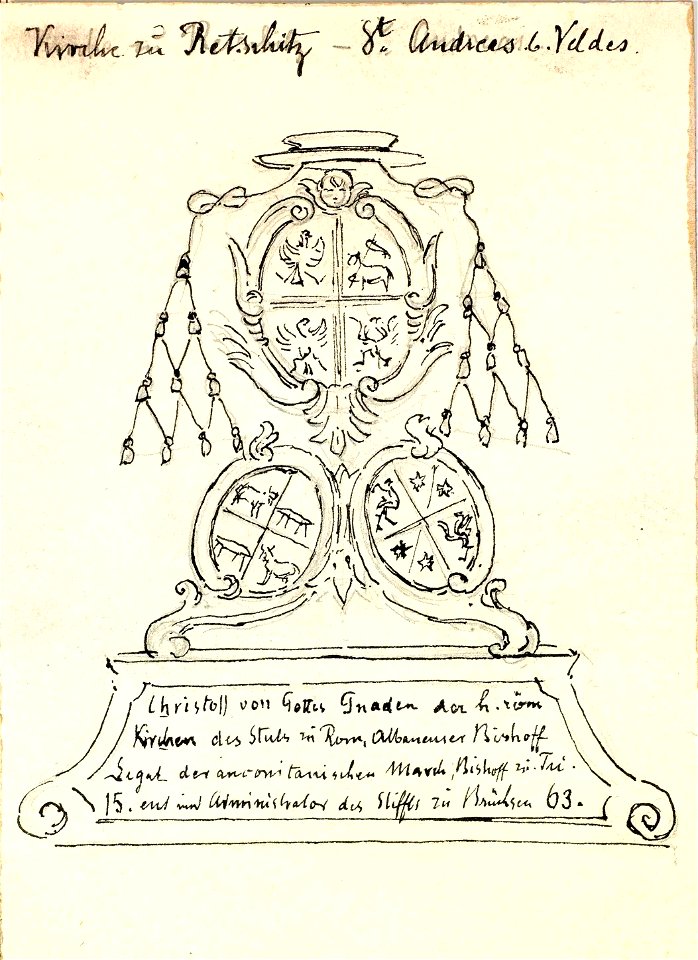 Kirche zu Retschitz – St. Andreas b. Veldes.
Christoff von Gottes Gnaden der h. röm
Kirchen des Stuls zu Rom, Albanenser Bischoff
Legat der anconitanischen March, Bischoff zu Tri.
15. ent und Administrator des Stiffts zu Brüchsen 63.